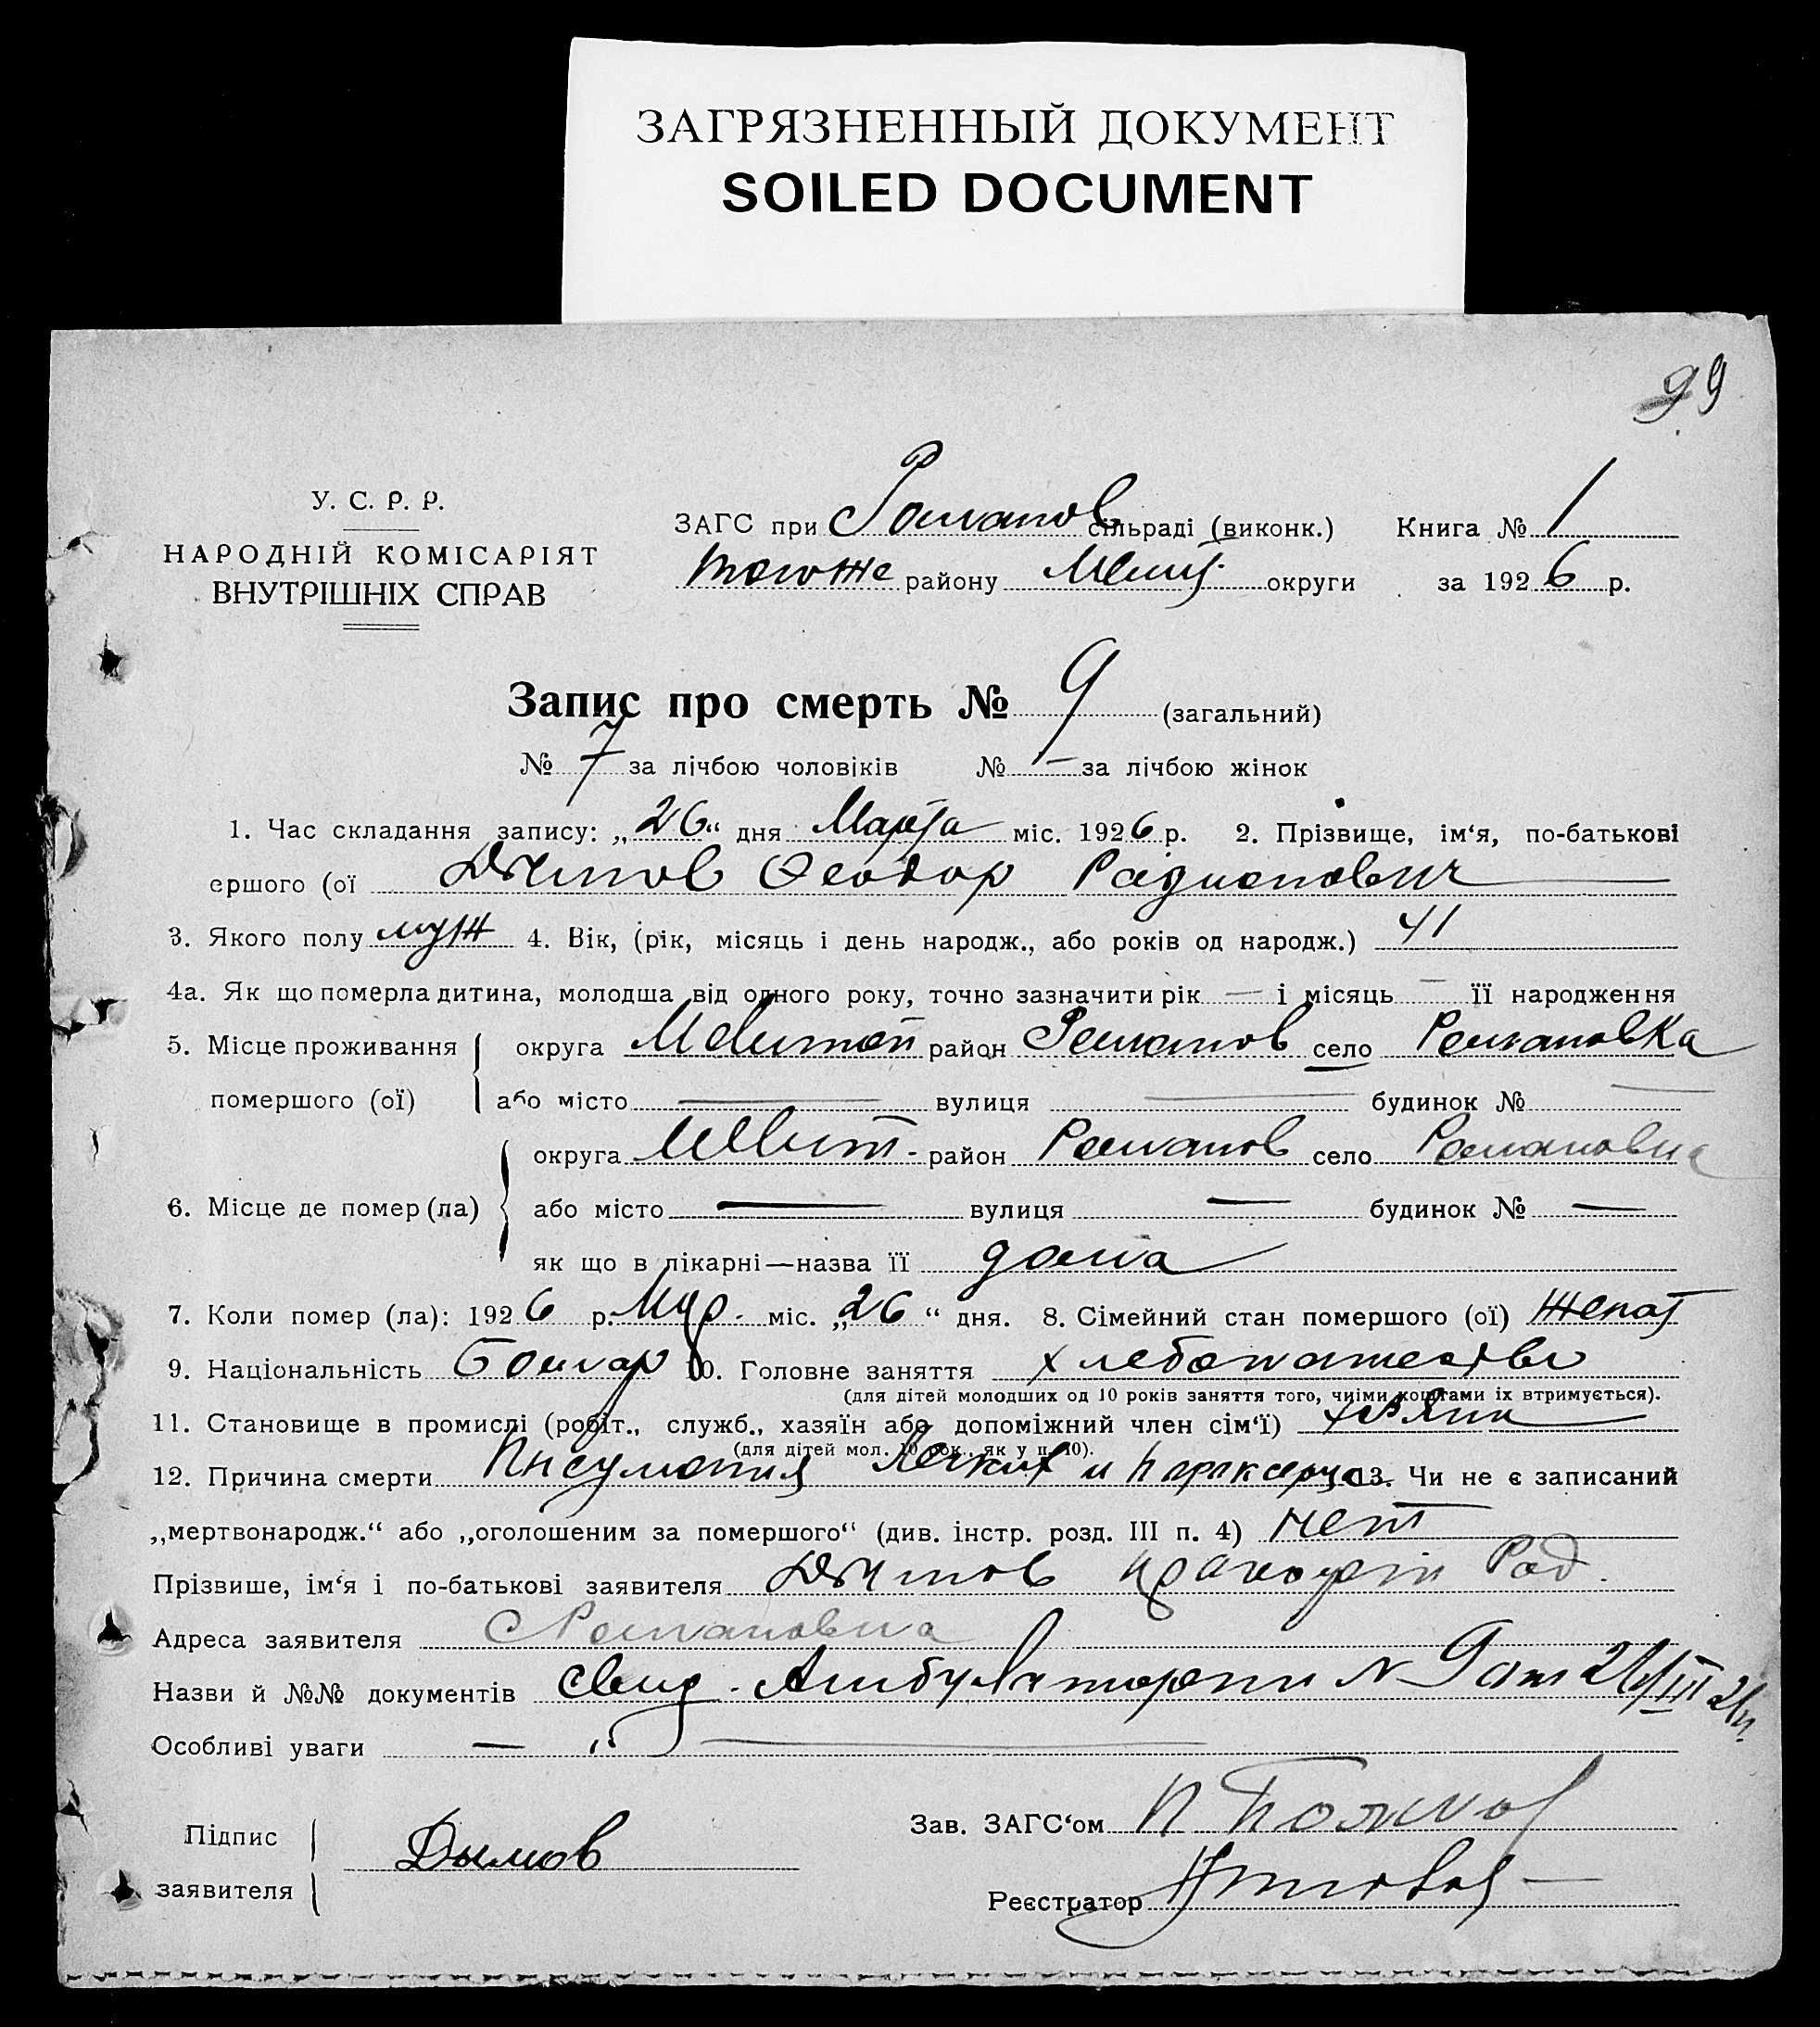 ЗАГРЯЗНЕННЫЙ ДОКУМЕНТ
SOILED DOCUMENT
99
У. С. Р. Р.
НАРОДНІЙ КОМІСАРІЯТ
ВНУТРІШНІХ СПРАВ
ЗАГС при Романов сільраді (виконк.) Книга № 1
тогоже району округи за 1926 р.
Запис про смерть № 9 (загальний)
№ 7 за лічбою чоловіків № — за лічбою жінок
1. Час складання запису: „26“ дня Марта міс. 1926 р. 2. Прізвище, ім‘я, по-батькові
ершого (ої Феодор Радионович
3. Якого полу муж 4. Вік, (рік, місяць і день народж., або років од народж.) 41
4а. Як що померла дитина, молодша від одного року, точно зазначити рік — і місяць — її народження
5. Місце проживання округа Мелитоп район Романов село Романовка
помершого (ої) або місто — вулиця — будинок № —
округа Мелит. район Романов село Романовка
6. Місце де помер (ла) або місто — вулиця — будинок № —
як що в лікарні—назва її дома
7. Коли помер (ла): 1926 р. Мар. міс. „26“ дня. 8. Сімейний стан помершого (ої) Женат
9. Національність Болгар 10. Головне заняття хлебопашество
(для дітей молодших од 10 років заняття того, чиїми коштами їх втримується).
11. Становище в промислі (робіт., служб., хазяїн або допоміжний член сім‘ї)
(для дітей мол. 10 рок., як у п. 10).
12. Причина смерти Пнеумония Легких и 13. Чи не є записаний
„мертвонародж.“ або „оголошеним за помершого“ (див. інстр. розд. III п. 4) нет
Прізвише, ім‘я і по-батькові заявителя Рад.
Адреса заявителя с Романовка
Назви й №№ документів Свид. Амбулатории N 9 от 26/III 26
Особливі уваги —
Підпис
заявителя
Дымов
Зав. ЗАГС‘ом
Реєстратор